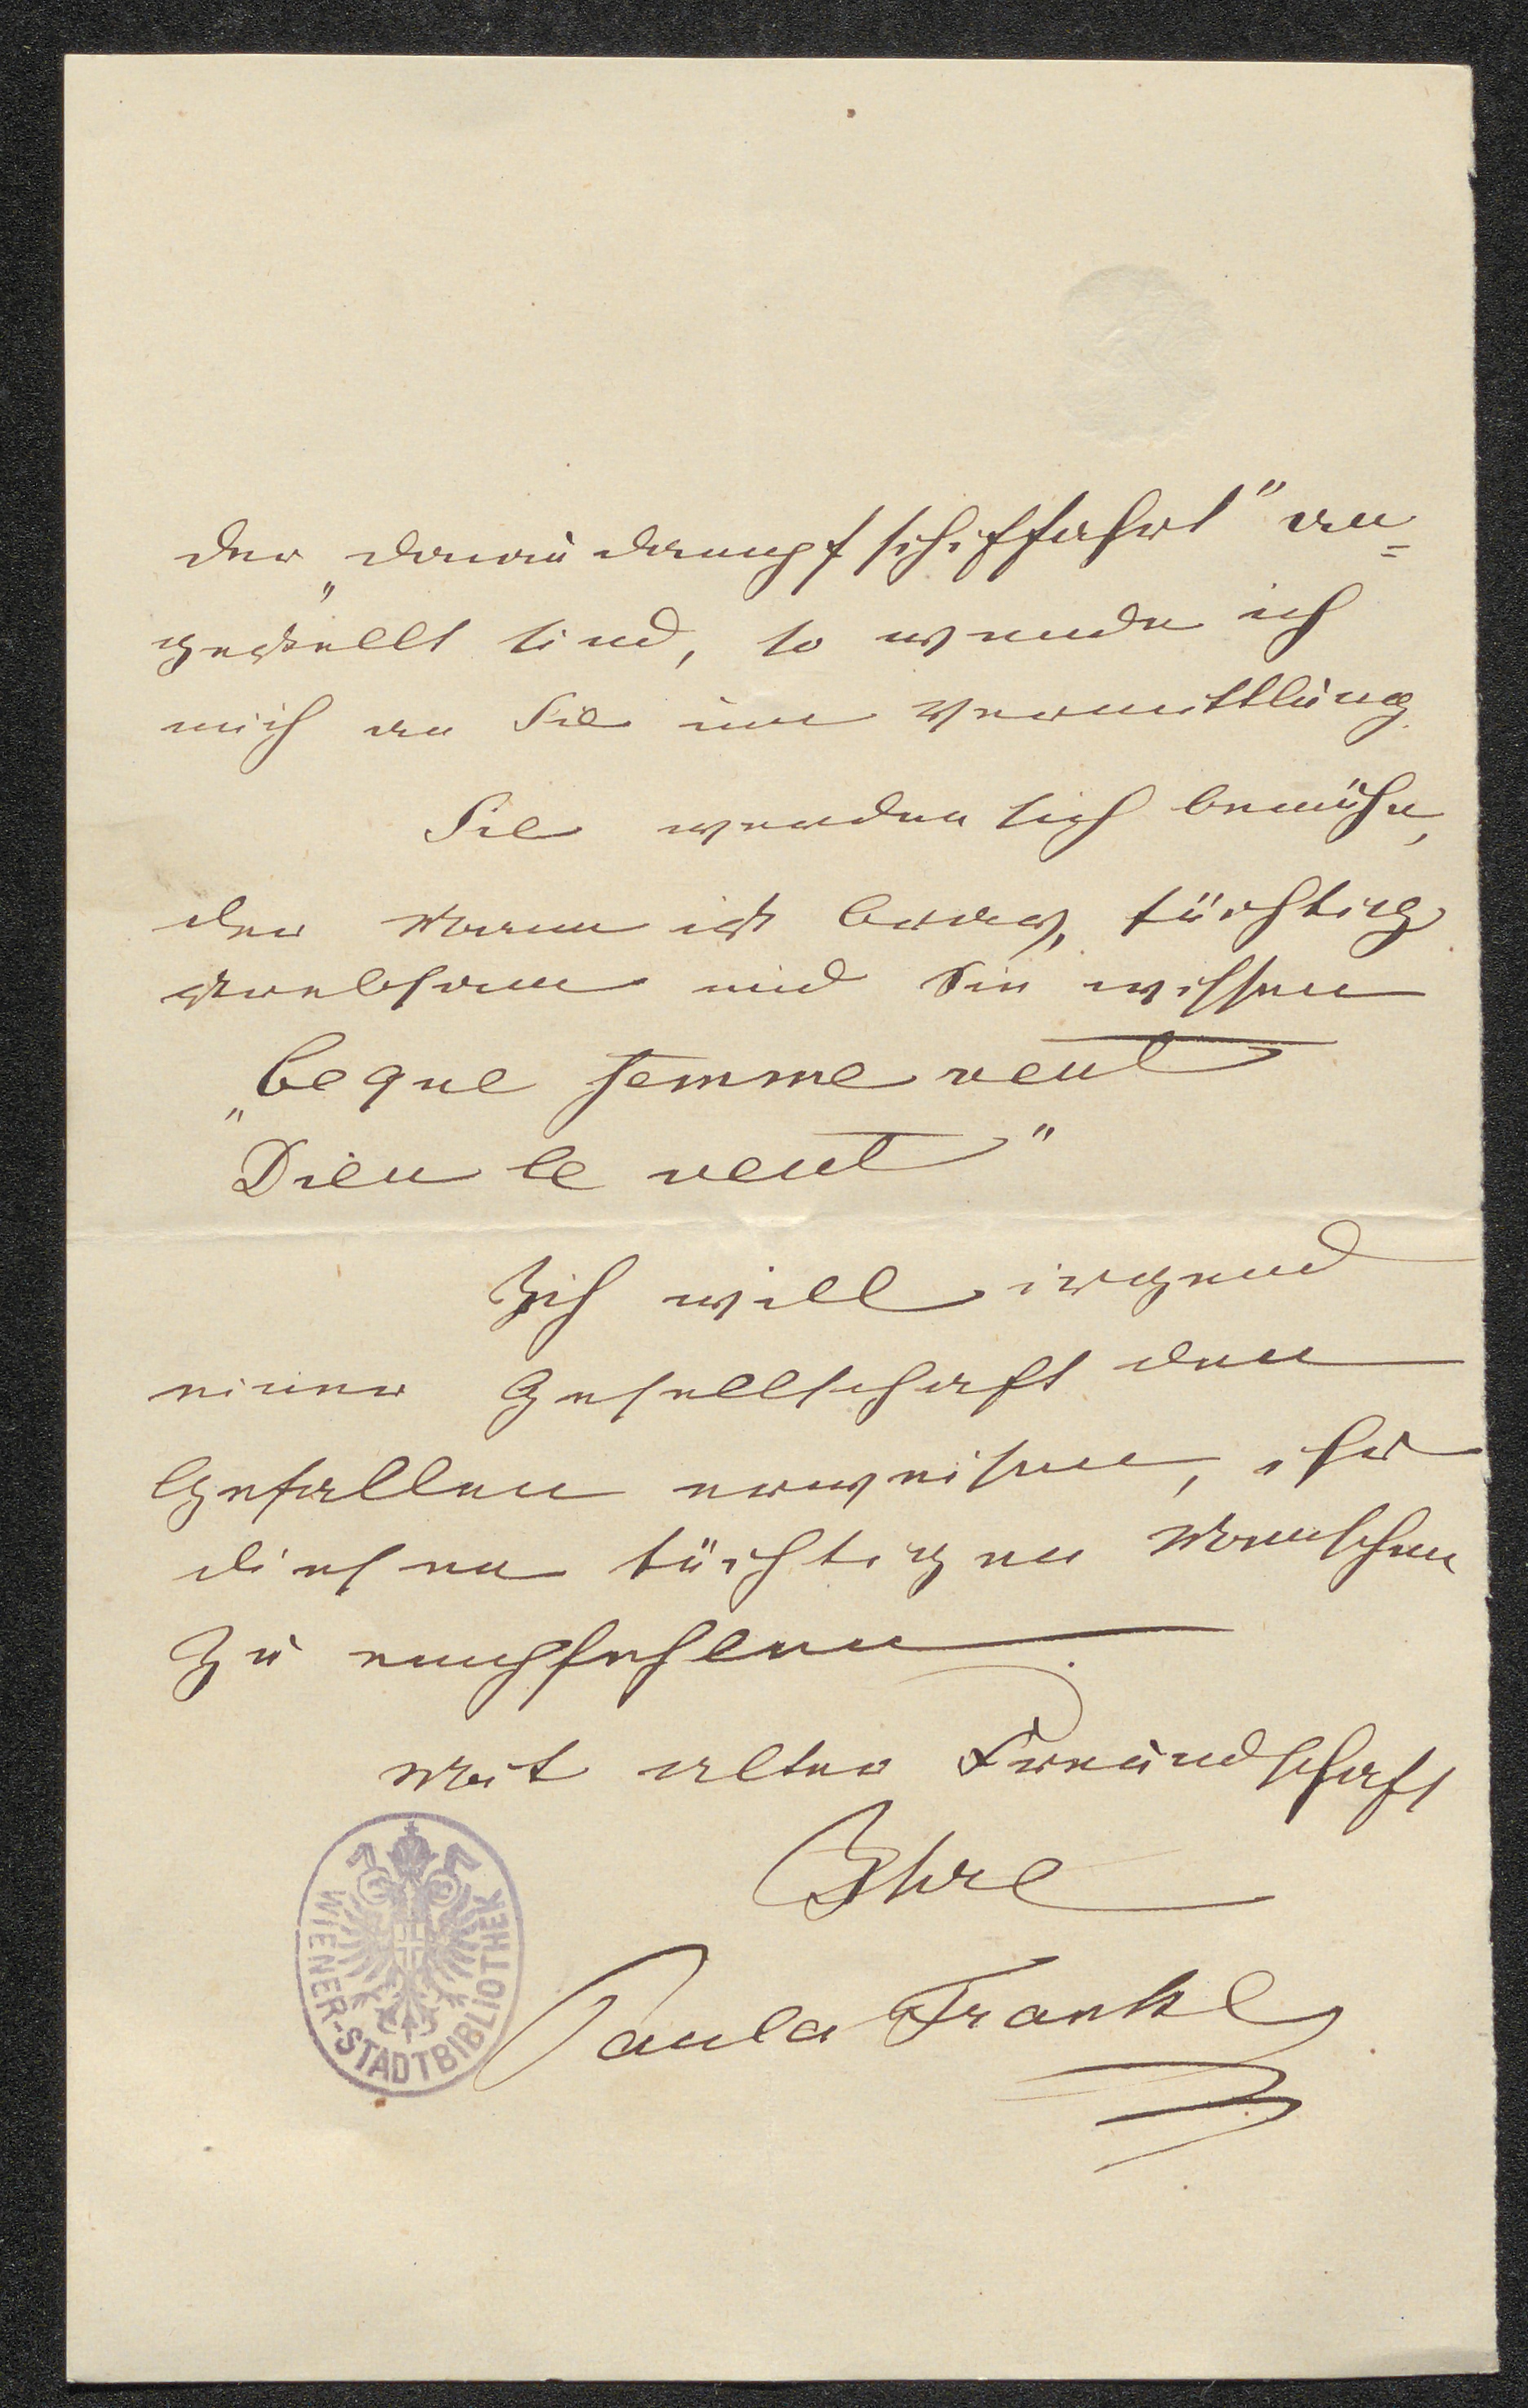 der „Donaudampfschiffahrt" an=
gestellt sind, so wende ich
mich an Sie um Vermittlung
Sie werden sich bemühn,
der Mann ist brav, tüchtig
strebsam und Sie wissen
„Ce que femme veut
Dieu le veut"
Ich will irgend
einer Gesellschaft den
Gefallen erweisen, ihr
diesen tüchtigen Menschen
zu empfehlen
Mit alter Freundschaft
Ihre
Paula Frankl
WIENER-STADTBIBLIOTHEK